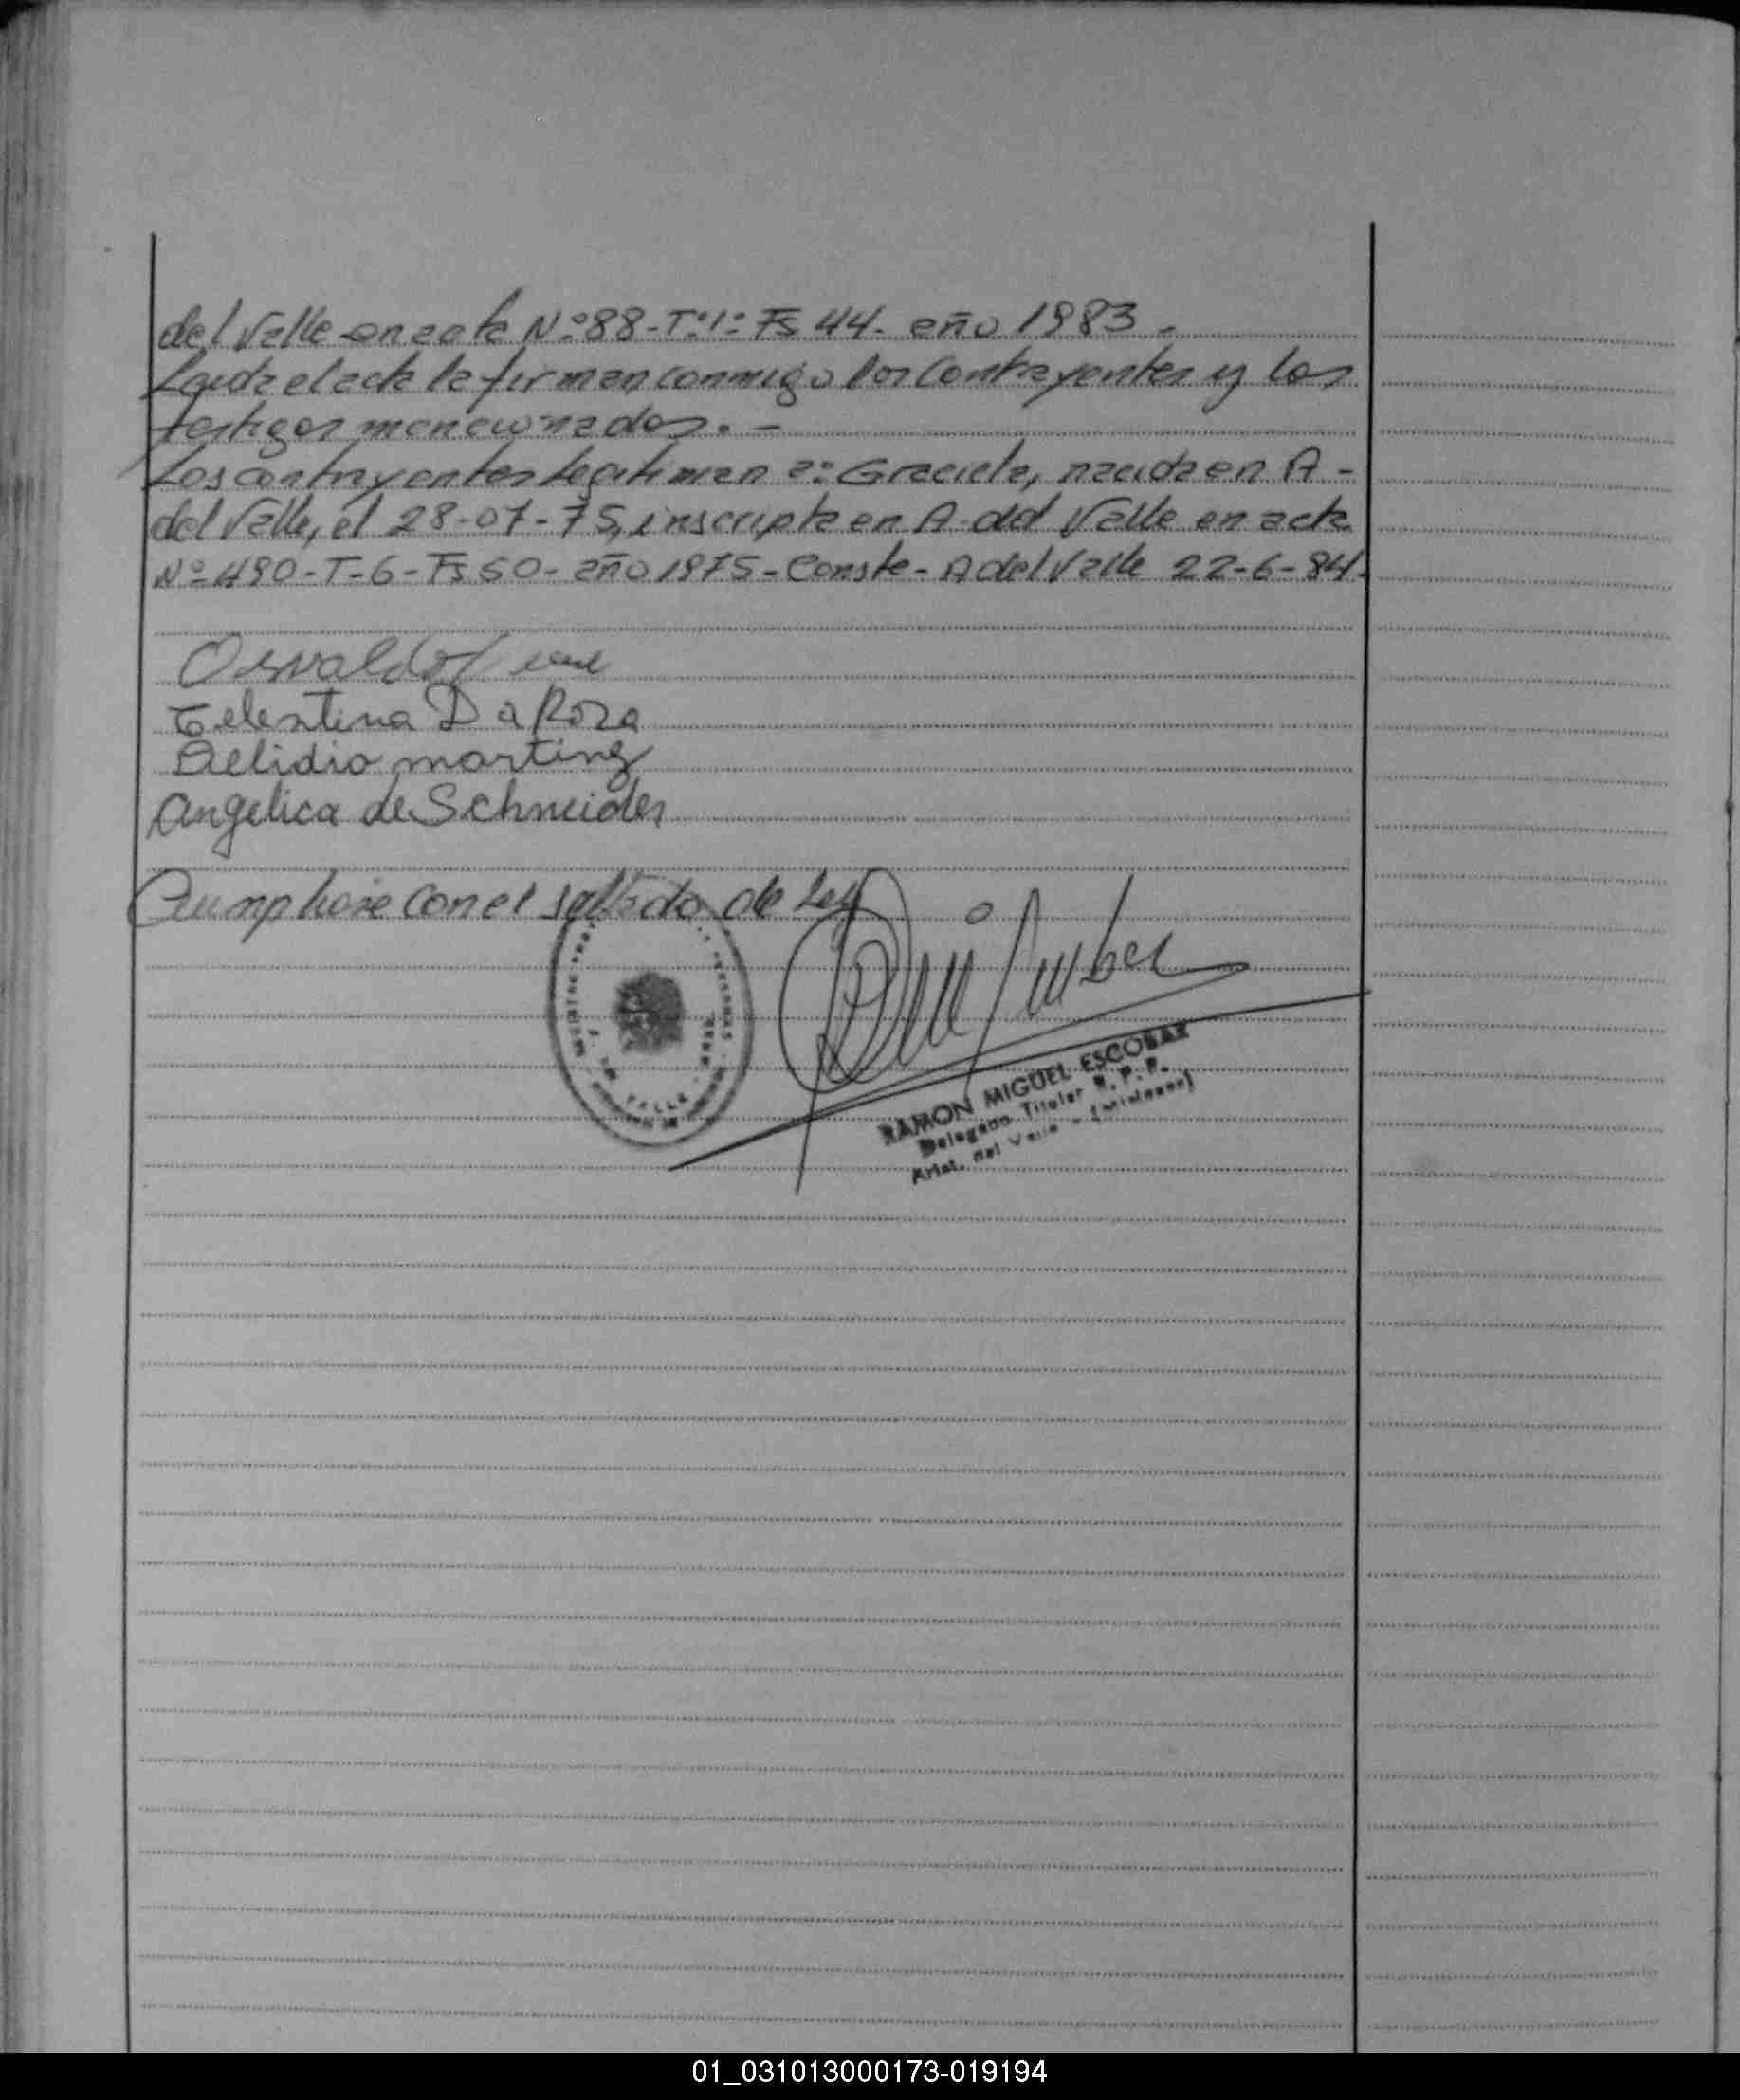 del Valle en acta Nº 88-Tº1º Fs 44- año 1983-
Leida el acta la firman conmigo los contrayentes y los
testigos mencionados.-
Los contrayentes legitiman a: Graciela, nacida en A-
del Valle, el 28-07-75, inscripta en A-del Valle en acta
Nº 490-T-6-Fs 60- año 1975-Conste-A del Valle 22-6-84-
Osvaldo
Celestina Da Roza
Delidio martinz
Angelica de Schneider
Cumpliose con el sellado de Ley
VALLE
RAMON MIGUEL ESCOBAR
Delegado Titular R. P. P.
Arist. del Valle - (Misiones)
01_031013000173-019194